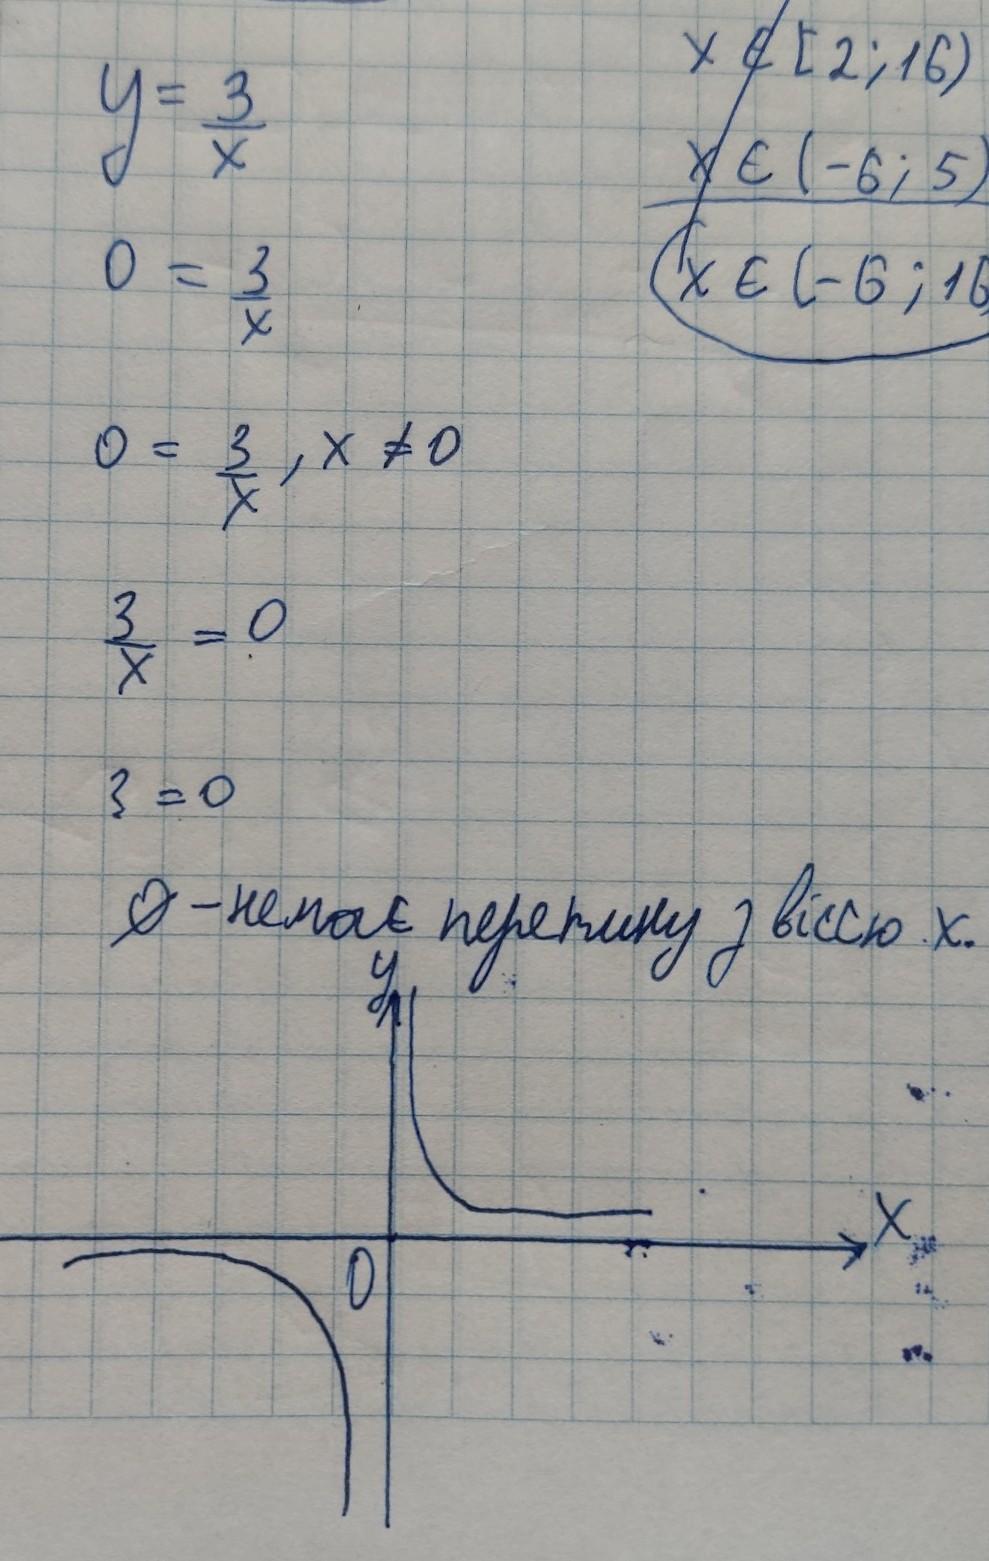 y = 3/x
x ∈ [2; 16)
x ∈ (-6; 5)
0 = 3/x
x ∈ (-6; 16
0 = 3/x, x ≠ 0
3/x = 0
3 = 0
∅ - немає перетину з віссю x.
y
X
0